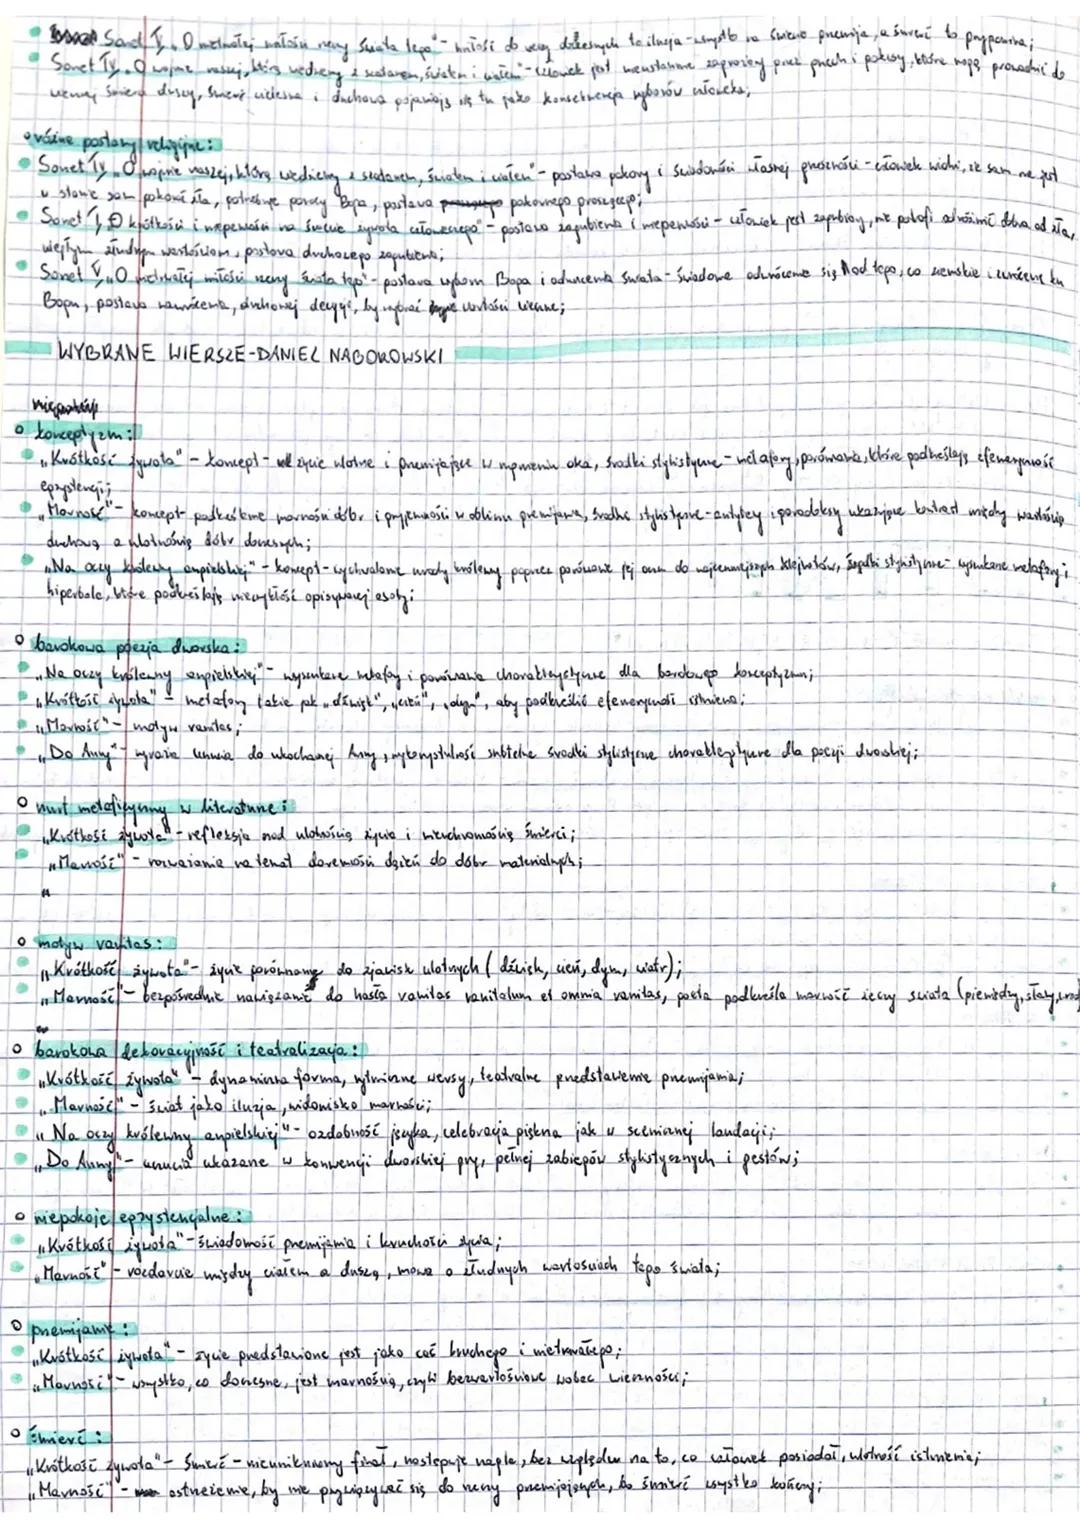 Sonet V „O nietrwałej miłości rzeczy świata tego" - miłość do rzeczy doczesnych to iluzja - wszystko na świecie przemija, a śmierć to przypomina;
Sonet IV „O wojnie naszej, którą wiedziemy z szatanem, światem i ciałem" - człowiek jest nieustannie zagrożony przez grzech i pokusy, które mogą prowadzić do
wiecznej śmierci duszy, śmierć cielesna i duchowa pojawiają się tu jako konsekwencja wyborów człowieka;
różne postawy religijne:
Sonet IV „O wojnie naszej, którą wiedziemy z szatanem, światem i ciałem" - postawa pokory i świadomości własnej grzeszności - człowiek widzi, że sam nie jest
w stanie sam pokonać zła, potrzebuje pomocy Boga, postawa pokornego proszącego;
Sonet „O krótkości i niepewności na świecie żywota człowieczego" - postawa zagubienia i niepewności - człowiek jest zagubiony, nie potrafi odróżnić dobra od zła,
uległym złudnym wartościom, postawa duchowego zagubienia;
Sonet V „O nietrwałej miłości rzeczy świata tego" - postawa wyboru Boga i odrzucenia świata - świadome odwrócenie się od tego, co ziemskie i zwrócenie ku
Bogu, postawa nawrócenia, duchowej decyzji, by wybrać wartości wieczne;
WYBRANE WIERSZE - DANIEL NABOROWSKI
konceptyzm:
„Krótkość żywota" - koncept - życie ulotne i przemijające w mgnieniu oka, środki stylistyczne - metafory, porównania, które podkreślają efemeryczność
egzystencji;
„Marność" - koncept - podkreślenie marności dóbr i przyjemności w obliczu przemijania, środki stylistyczne - antytezy i paradoksy ukazujące kontrast między wartością
duchową a ulotnością dóbr doczesnych;
„Na oczy królewny angielskiej" - koncept - wychwalanie urody królewny poprzez porównanie jej oczu do najcenniejszych klejnotów, środki stylistyczne - wyszukane metafory i
hiperbole, które podkreślają niezwykłość opisywanej osoby;
barokowa poezja dworska:
„Na oczy królewny angielskiej" - wyszukane metafory i porównania charakterystyczne dla barokowego konceptyzmu;
„Krótkość żywota" - metafory takie jak „dźwięk", „cień", „dym", aby podkreślić efemeryczność istnienia;
„Marność" - motyw vanitas;
„Do Anny" - wyraża uczucia do ukochanej Anny, wykorzystując subtelne środki stylistyczne charakterystyczne dla poezji dworskiej;
nurt metafizyczny w literaturze:
„Krótkość żywota" - refleksja nad ulotnością życia i nieuchronnością śmierci;
„Marność" - rozważania na temat daremności dążeń do dóbr materialnych;
„
motyw vanitas:
„Krótkość żywota" - życie porównane do zjawisk ulotnych (dźwięk, cień, dym, wiatr);
„Marność" - bezpośrednie nawiązanie do hasła vanitas vanitatum et omnia vanitas, poeta podkreśla marność rzeczy świata (pieniądzy, sławy,
barokowa dekoracyjność i teatralizacja:
„Krótkość żywota" - dynamiczna forma, rytmiczne wersy, teatralne przedstawienie przemijania;
„Marność" - świat jako iluzja, widowisko marności;
„Na oczy królewny angielskiej" - ozdobność języka, celebracja piękna jak w scenicznej laudacji;
„Do Anny" - uczucia ukazane w konwencji dworskiej gry, pełnej zabiegów stylistycznych i gestów;
niepokoje egzystencjalne:
„Krótkość żywota" - świadomość przemijania i kruchości życia;
„Marność" - rozdarcie między ciałem a duszą, mowa o złudnych wartościach tego świata;
przemijanie:
„Krótkość żywota" - życie przedstawione jest jako coś kruchego i nietrwałego;
„Marność" - wszystko, co doczesne, jest marnością, czyli bezwartościowe wobec wieczności;
śmierć:
„Krótkość żywota" - śmierć - nieunikniony finał, następuje nagle, bez względu na to, co człowiek posiadał, ulotność istnienia;
„Marność" - ostrzeżenie, by nie przywiązywać się do rzeczy przemijających, bo śmierć wszystko kończy;